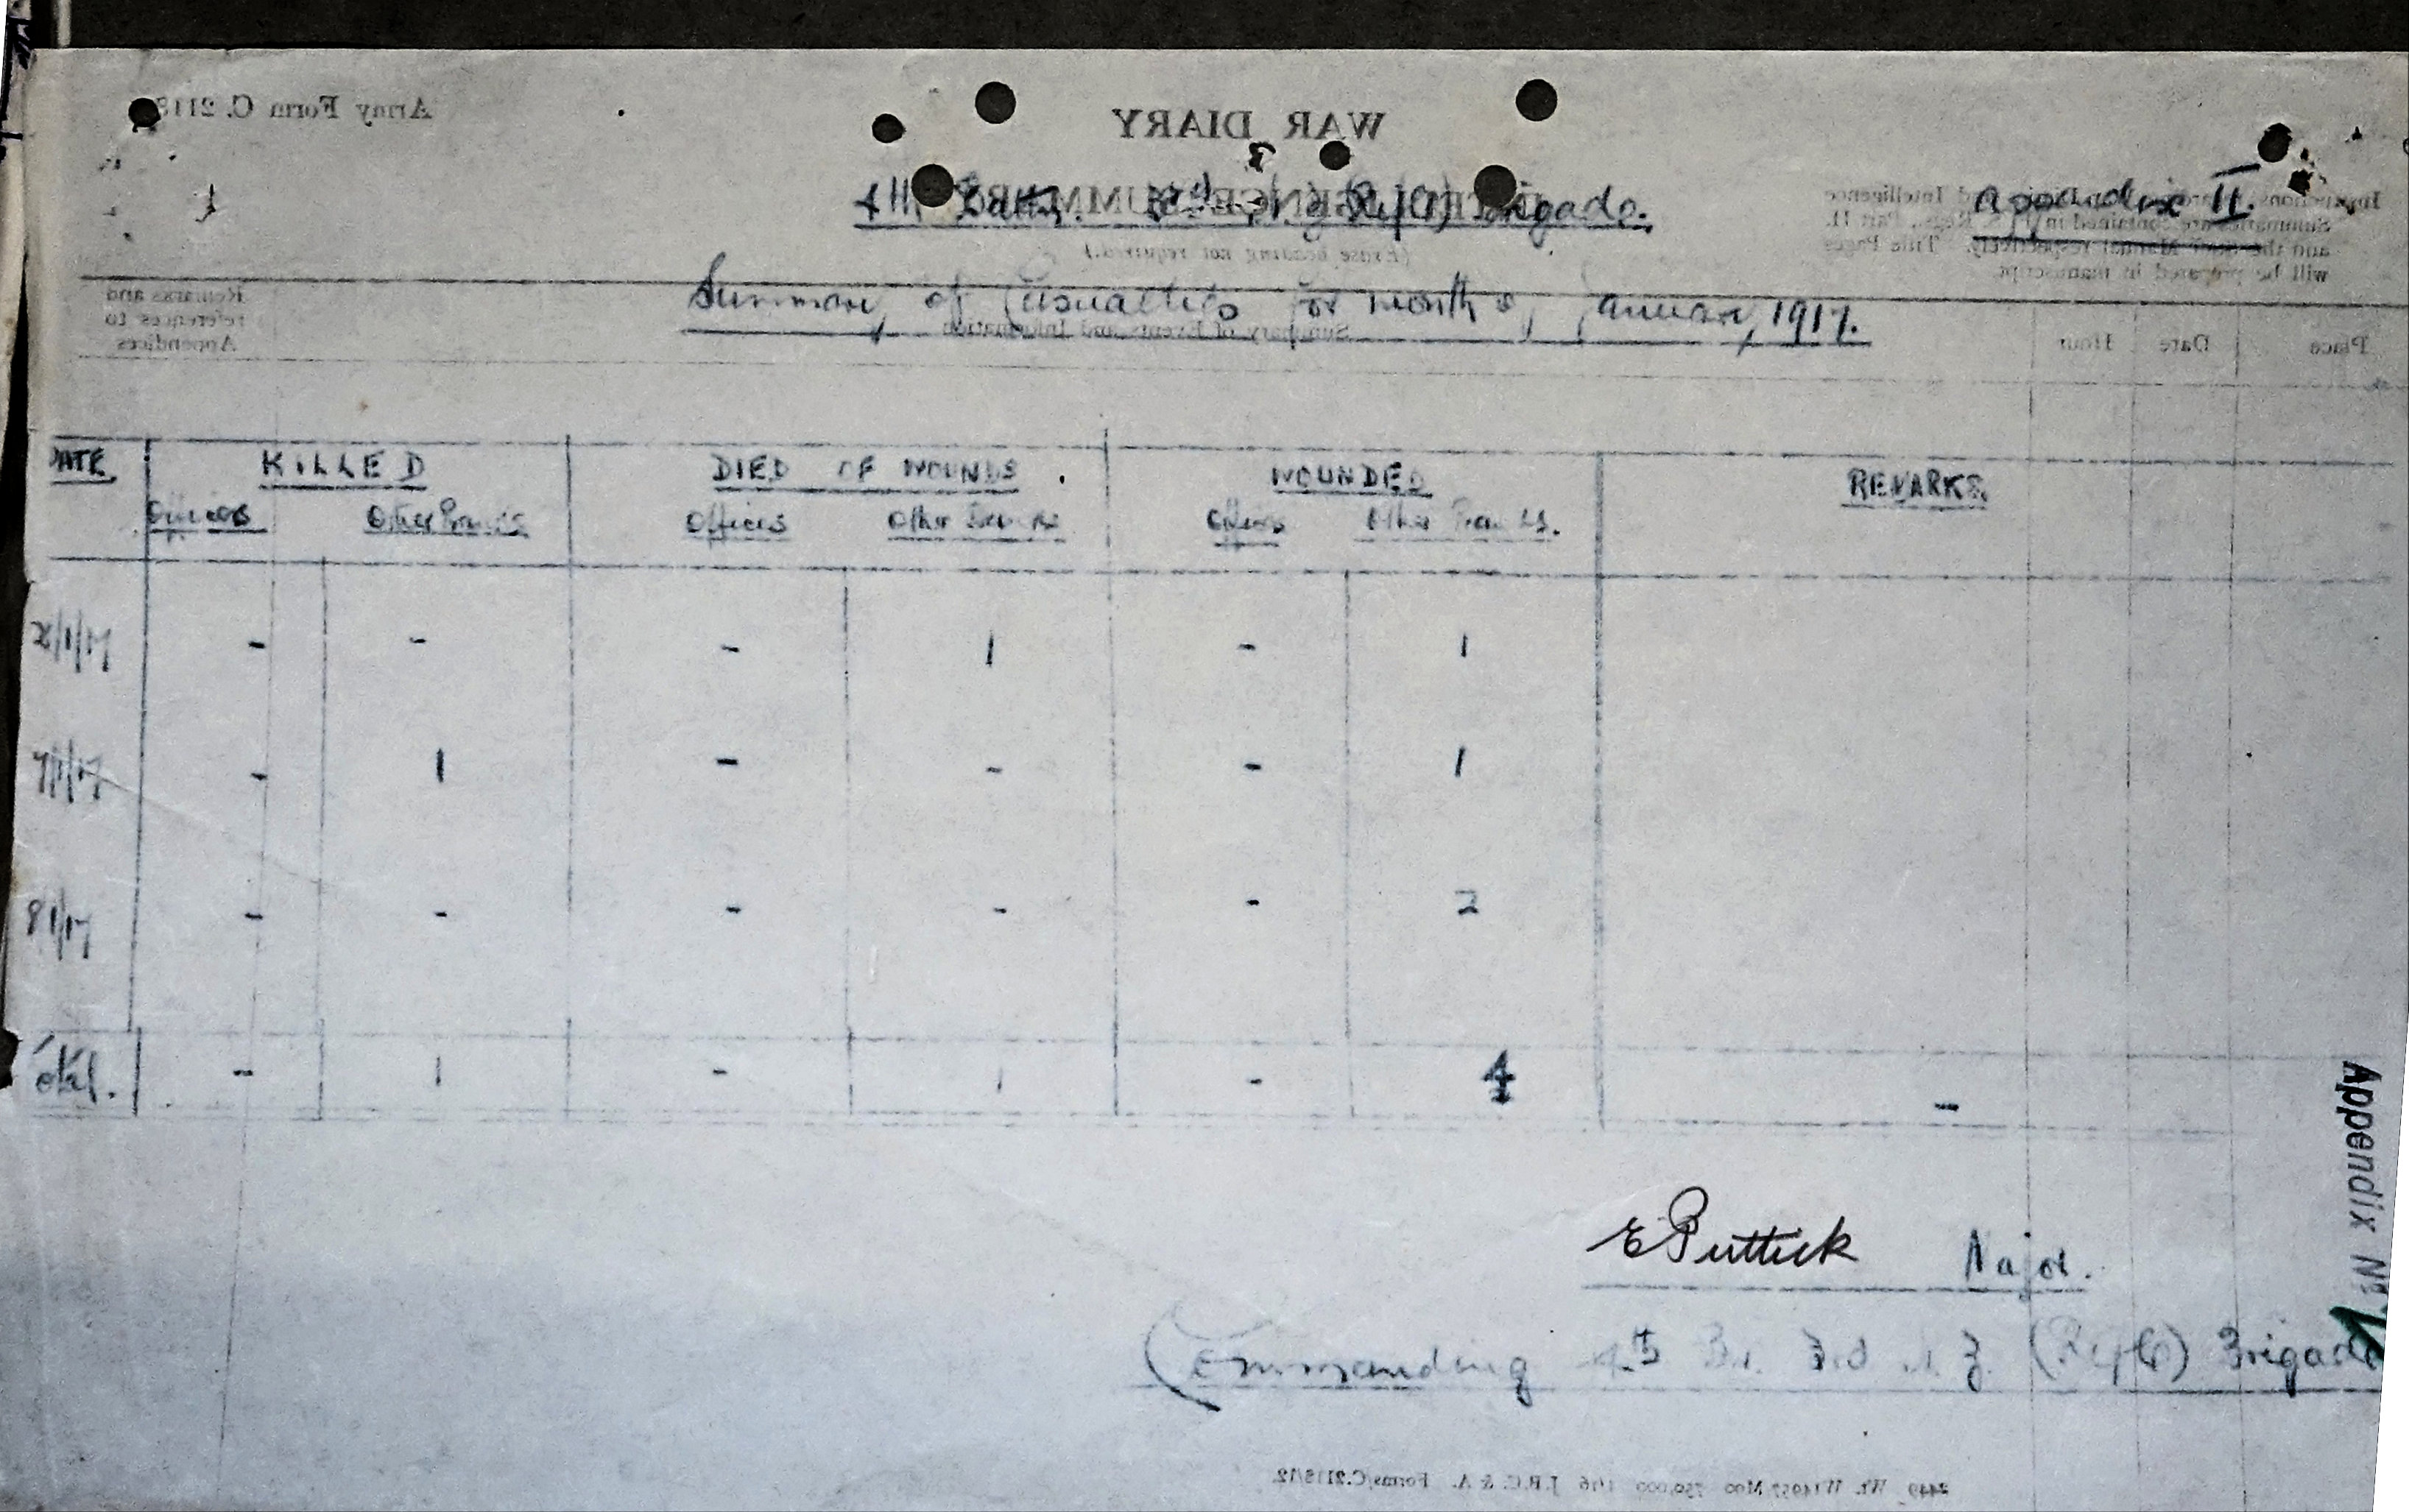 Appendix II.
4th Battn. 3rd N.Z. (Rifle) Brigade.
Summary of Casualties for month of January, 1917.
DATE KILLED DIED OF WOUNDS WOUNDED REMARKS
Officers Other Ranks Officers Other Ranks Officers Other Ranks.
/1/17 - - - 1 - 1
7/1/17 - 1 - - - 1
8/1/17 - - - - - 2
Total. - 1 - 1 - 4 -
E Puttick Major.
Commanding 4th Bn. 3rd N.Z. (Rifle) Brigade
Appendix No 1
WAR DIARY
Army Form C. 2118
INTELLIGENCE SUMMARY
(Erase heading not required.)
Instructions regarding War Diaries and Intelligence
Summaries are contained in F. S. Regs., Part II.
and the Staff Manual respectively. Title Pages
will be prepared in manuscript.
Place Date Hour Summary of Events and Information
Remarks and
references to
Appendices
2449 Wt. W14957/M90 750,000 1/16 J.B.C. & A. Forms/C.2118/12.